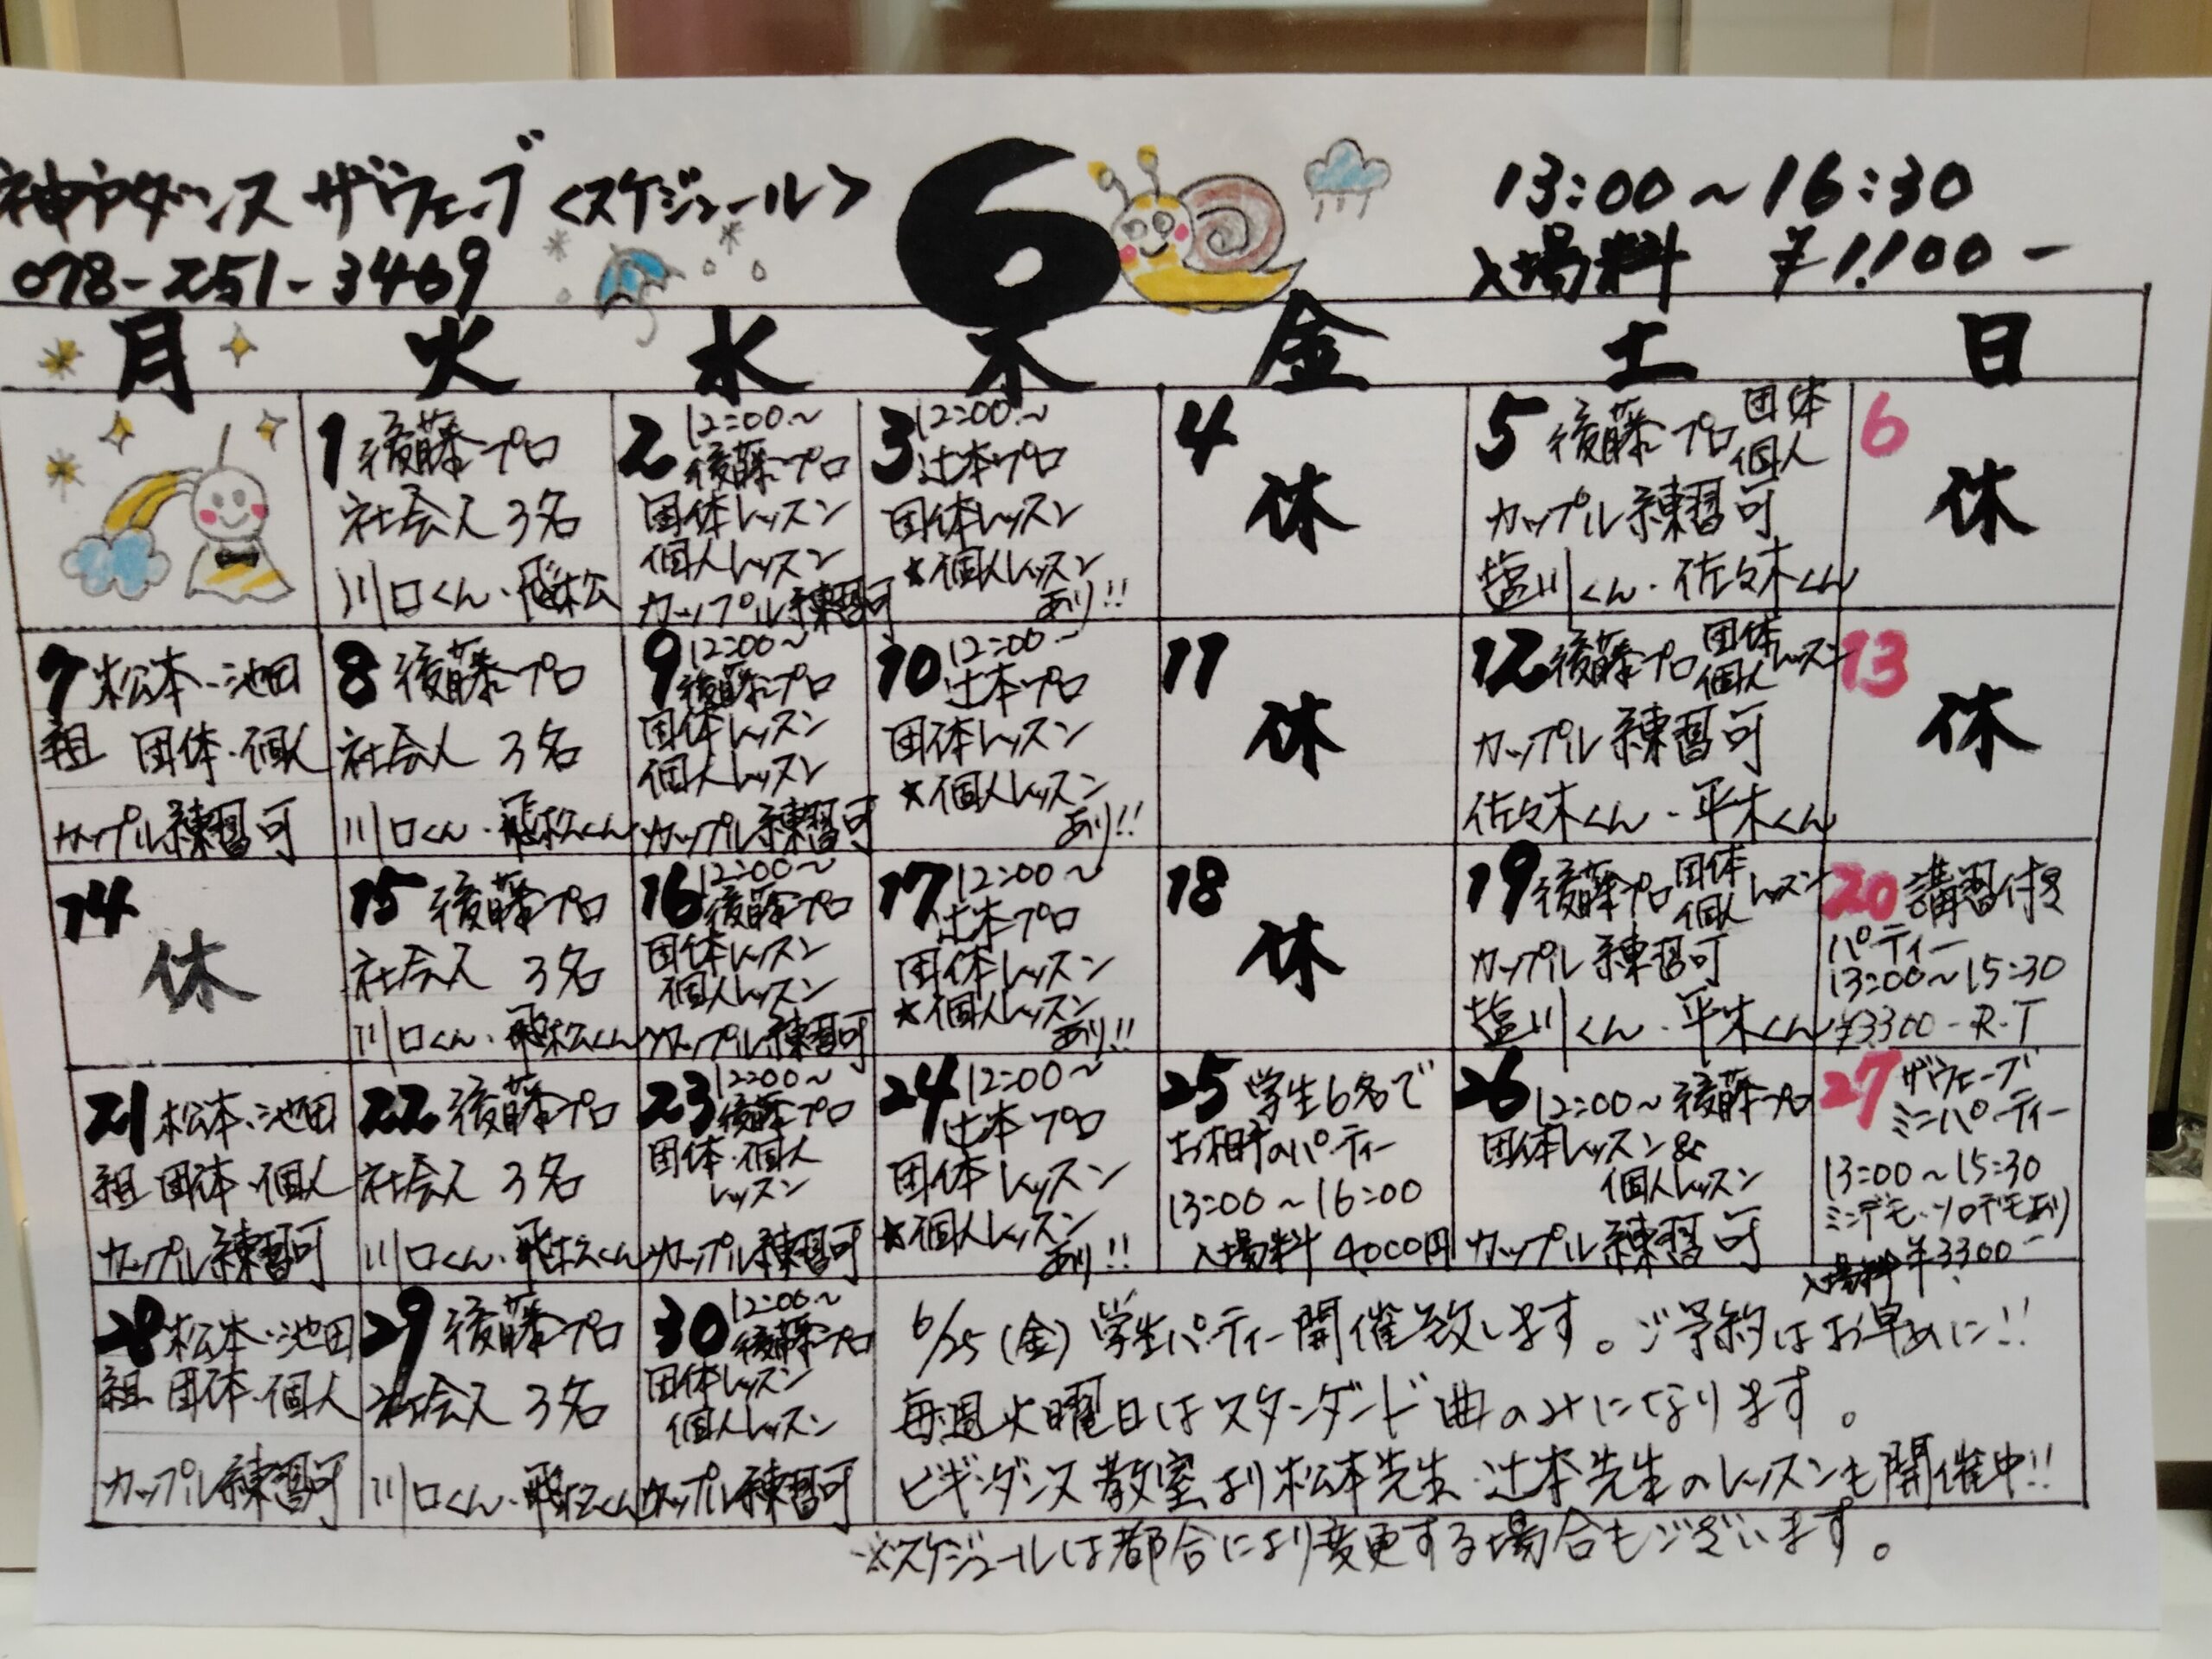 神戸ダンス ザウェーブ <スケジュール>
078-251-3469
6
13:00～16:30
入場料 ¥1,100-
月 火 水 木 金 土 日
1 後藤プロ
社会人 3名
川口くん・飛松
2 12:00～
後藤プロ
団体レッスン
個人レッスン
カップル練習可
3 12:00～
辻本プロ
団体レッスン
★個人レッスン
あり!!
4
休
5 後藤プロ 団体
個人
カップル練習可
塩川くん・佐々木くん
6
休
7 松本・池田
組 団体・個人
カップル練習可
8 後藤プロ
社会人 3名
川口くん・飛松くん
9 12:00～
後藤プロ
団体レッスン
個人レッスン
カップル練習可
10 12:00～
辻本プロ
団体レッスン
★個人レッスン
あり!!
11
休
12 後藤プロ 団体
個人 レッスン
カップル練習可
佐々木くん・平木くん
13
休
14
休
15 後藤プロ
社会人 3名
川口くん・飛松くん
16 12:00～
後藤プロ
団体レッスン
個人レッスン
カップル練習可
17 12:00～
辻本プロ
団体レッスン
★個人レッスン
あり!!
18
休
19 後藤プロ 団体
個人 レッスン
カップル練習可
塩川くん・平木くん
20 講習付き
パーティー
13:00～15:30
¥3,300- R・T
21 松本・池田
組 団体・個人
カップル練習可
22 後藤プロ
社会人 3名
川口くん・飛松くん
23 12:00～
後藤プロ
団体・個人
レッスン
カップル練習可
24 12:00～
辻本プロ
団体レッスン
★個人レッスン
あり!!
25 学生6名で
お相手のパーティー
13:00～16:00
入場料 4,000円
26 12:00～後藤プロ
団体レッスン&
個人レッスン
カップル練習可
27 ザウェーブ
ミニパーティー
13:00～15:30
ミニデモ・ソロデモあり
入場料¥3,300-
28 松本・池田
組 団体・個人
カップル練習可
29 後藤プロ
社会人 3名
川口くん・飛松くん
30 12:00～
後藤プロ
団体レッスン
個人レッスン
カップル練習可
6/25(金)学生パーティー開催致します。ご予約はお早めに!!
毎週火曜日はスタンダード曲のみになります。
ビギンダンス教室より松本先生・辻本先生のレッスンも開催中!!
※スケジュールは都合により変更する場合もございます。